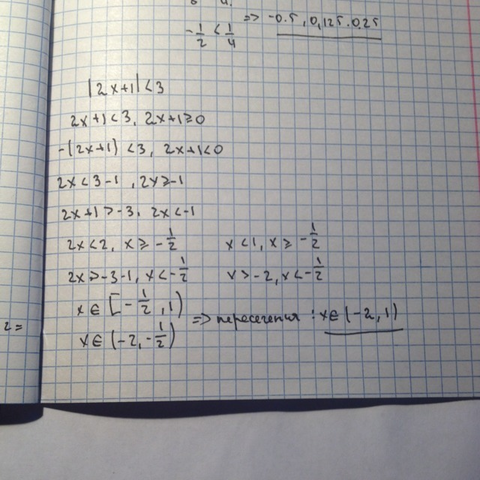 => -0.5, 0,125. 0.25
-1/2 < 1/4
|2x+1|<3
2x+1<3, 2x+1≥0
-(2x+1)<3, 2x+1<0
2x<3-1, 2x≥-1
2x+1>-3, 2x<-1
2x<2, x≥-1/2 x<1, x≥-1/2
2x>-3-1, x<-1/2 x>-2, x<-1/2
x∈[-1/2, 1)
x∈(-2, -1/2) => пересечения: x∈(-2, 1)
2=